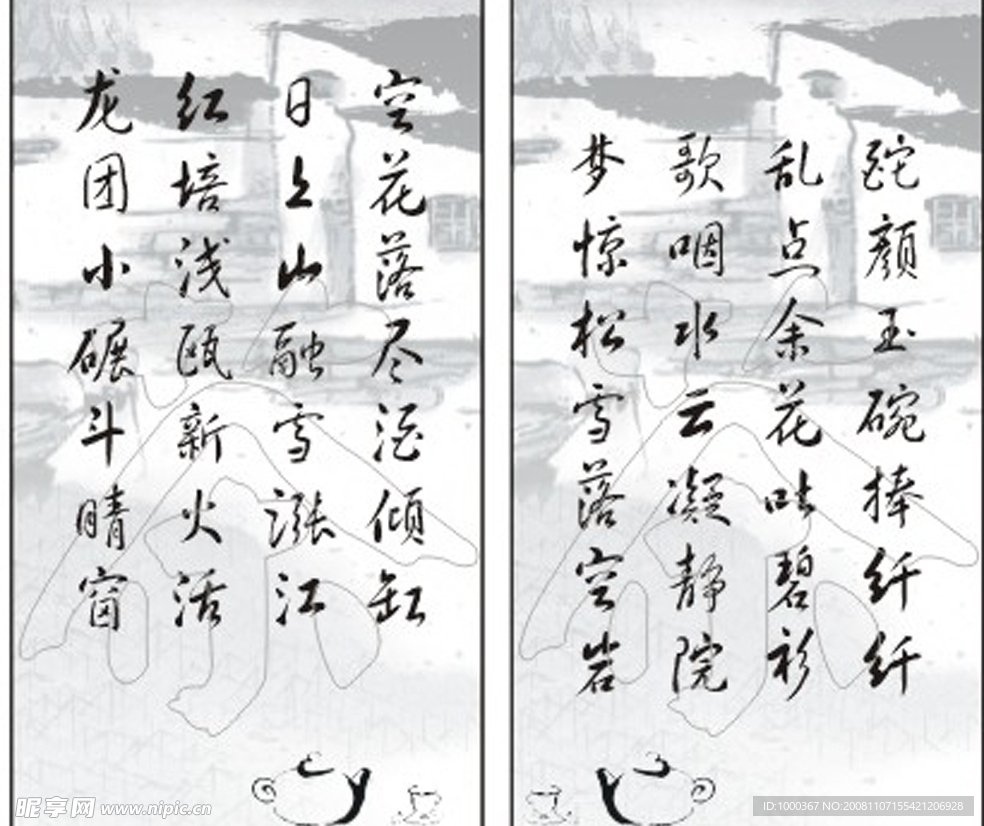 空花落尽酒倾缸
日上山融雪涨江
红培浅瓯新火活
龙团小碾斗晴窗
酡颜玉碗捧纤纤
乱点余花吐碧衫
歌咽水云凝静院
梦惊松雪落空岩
昵享网 www.nipic.cn
ID:1000367 NO:20081107155421206928